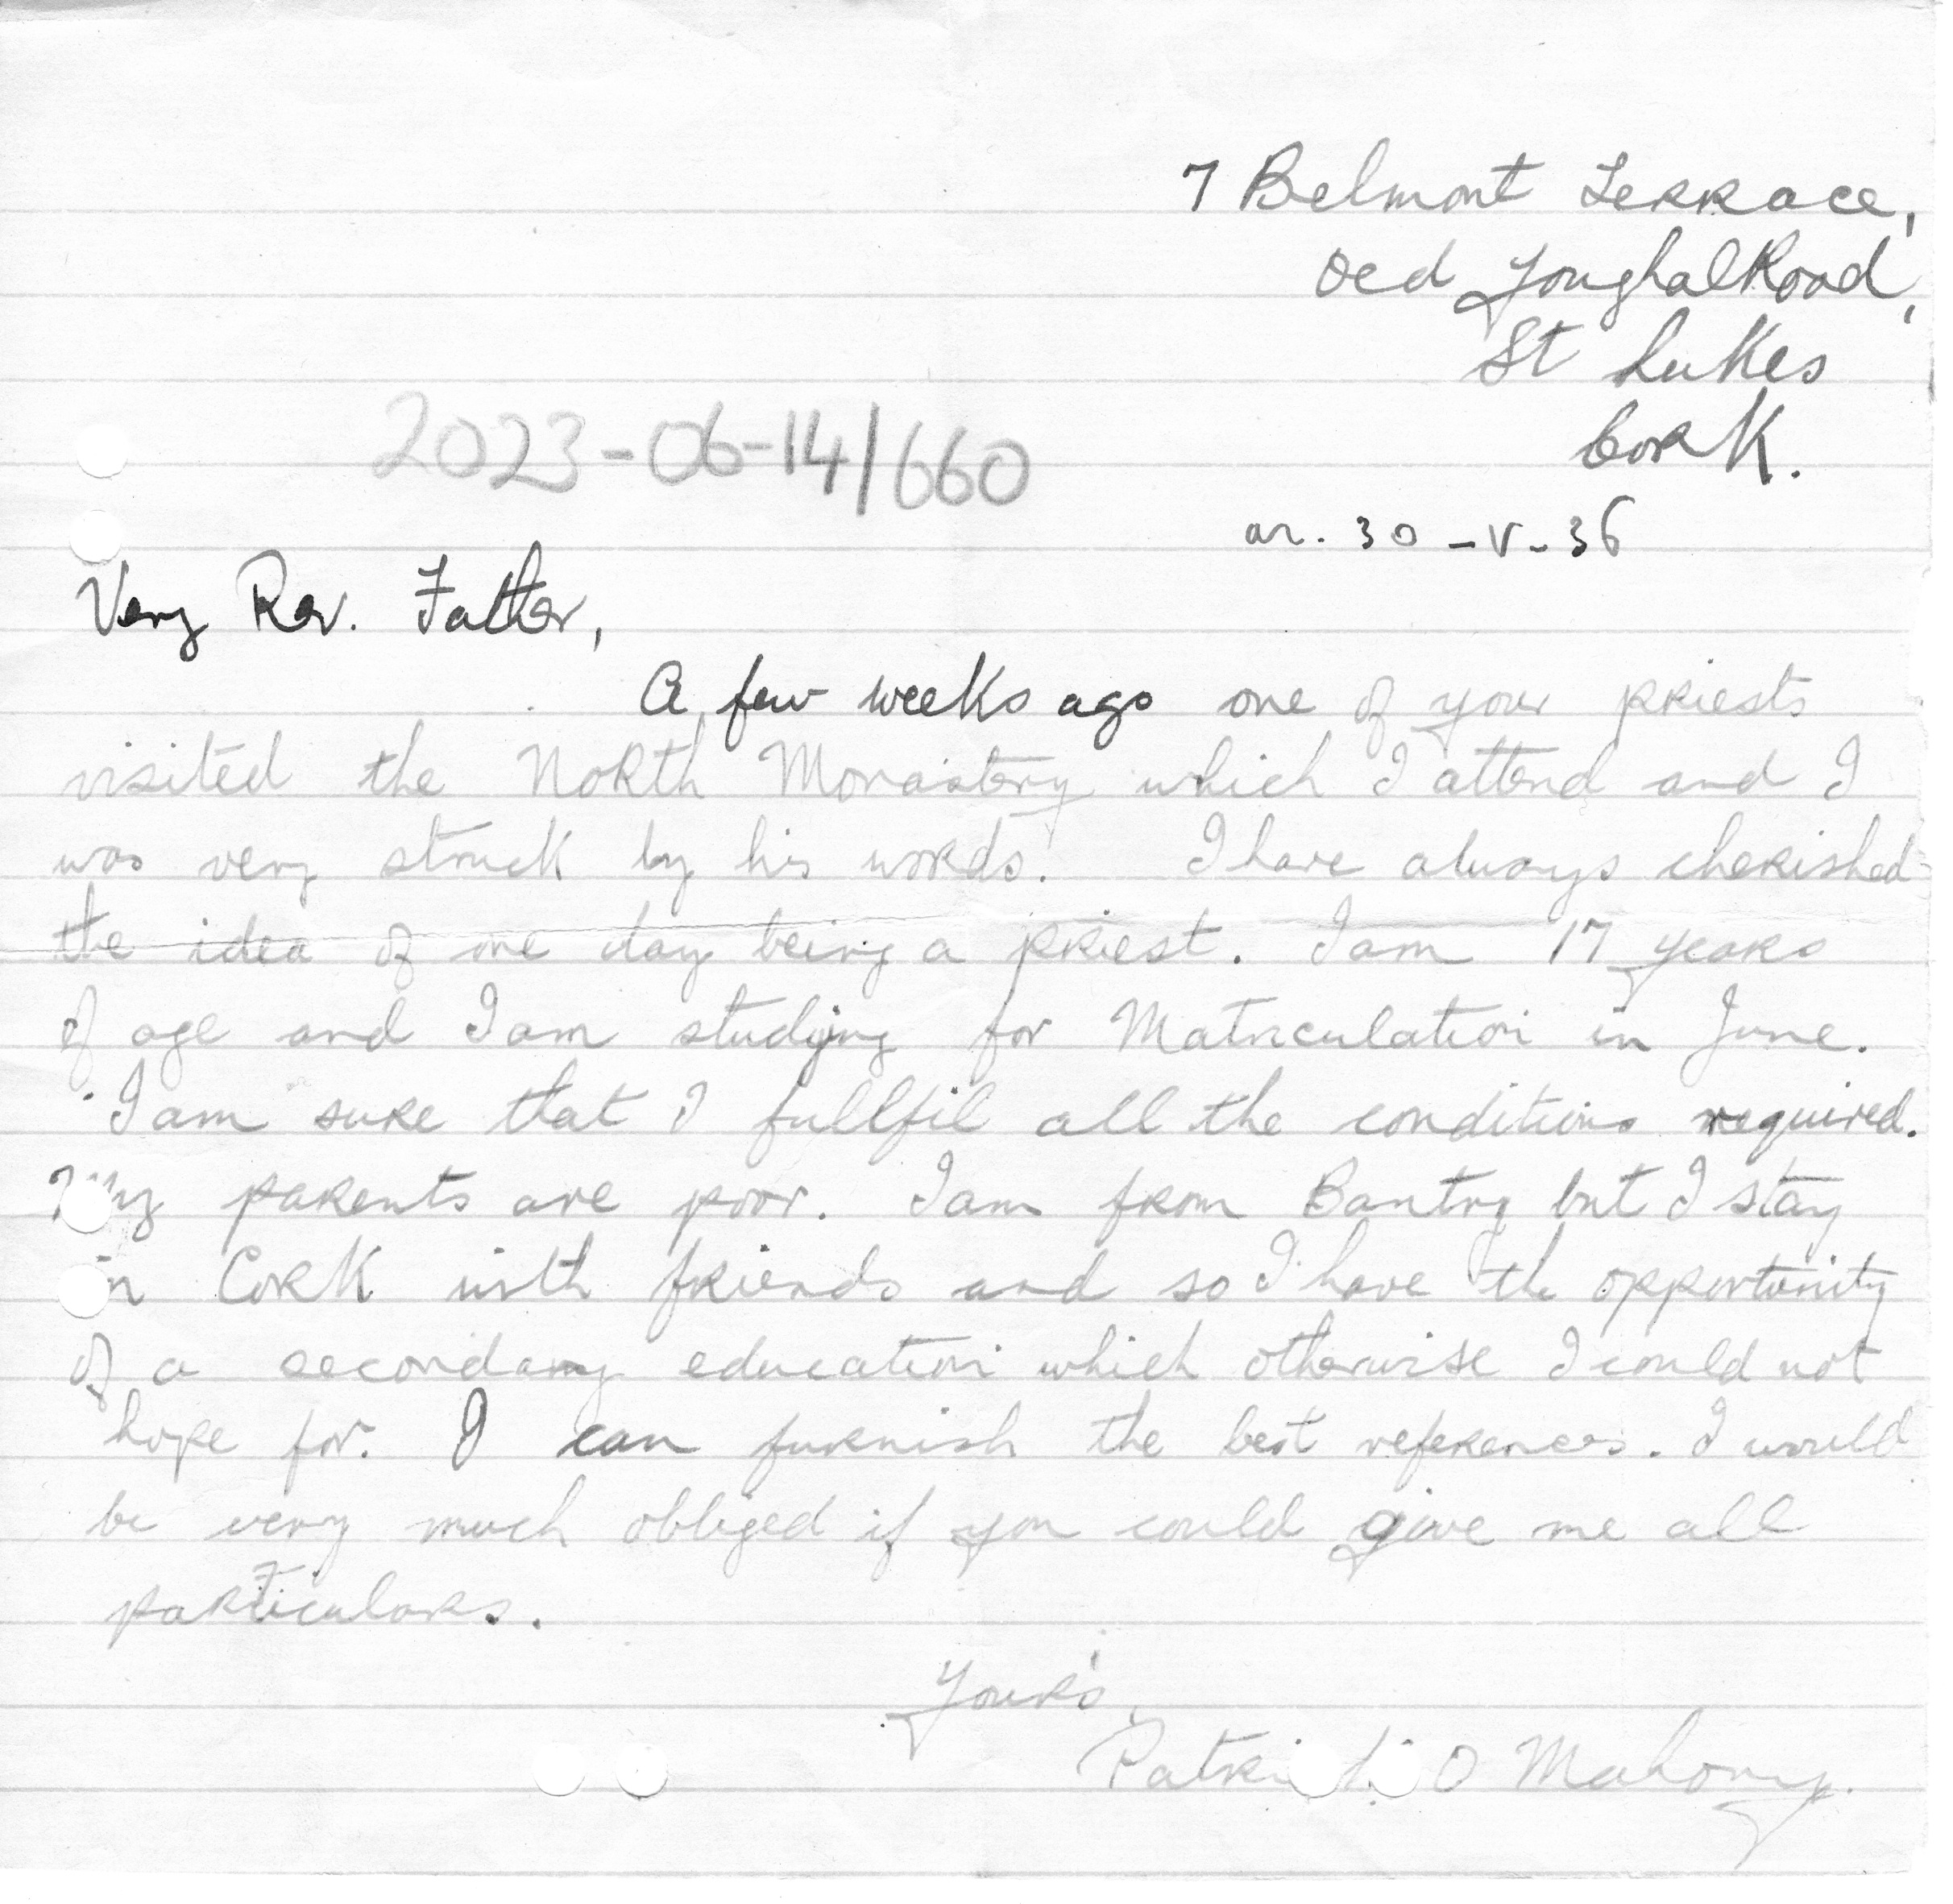 7 Belmont Terrace,
Old Youghal Road,
St Lukes
Cork.
2023-06-14/660
an. 30-V-36
Very Rev. Father,
A few weeks ago one of your priests
visited the North Monastery which I attend and I
was very struck by his words. I have always cherished
the idea of one day being a priest. I am 17 years
of age and I am studying for Matriculation in June.
I am sure that I fullfil all the conditions required.
My parents are poor. I am from Bantry but I stay
in Cork with friends and so I have the opportunity
of a secondary education which otherwise I could not
hope for. I can furnish the best references. I would
be very much obliged if you could give me all
particulars.
Your's,
Patrick O Mahony.